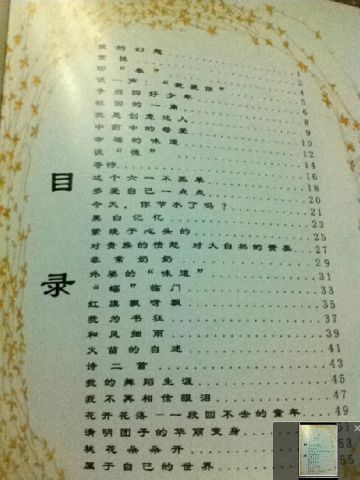 目录
我的幻想
赞桂
回“春”
说一声“我爱你” 1
争当四好少年 2
校园的一角 4
我是创意达人 5
中箭中的母爱 6
幸福的味道 8
谈“德” 9
等待 10
这个六一不孤单 12
多爱自己一点点 14
今天，你节水了吗？ 16
黑白记忆 18
萦绕于心头的 20
对贵族的愤怒 对大自然的赞美 21
非常奶奶 23
外婆的“味道” 25
“蝠”临门 27
红旗飘呀飘 29
我为书狂 31
和风细雨 33
火苗的自述 35
诗二首 37
我的舞蹈生涯 39
我不再相信眼泪 41
花开花落——一段回不去的童年 43
清明团子的华丽变身 45
桃花朵朵开 47
属于自己的世界 49
51
53
55